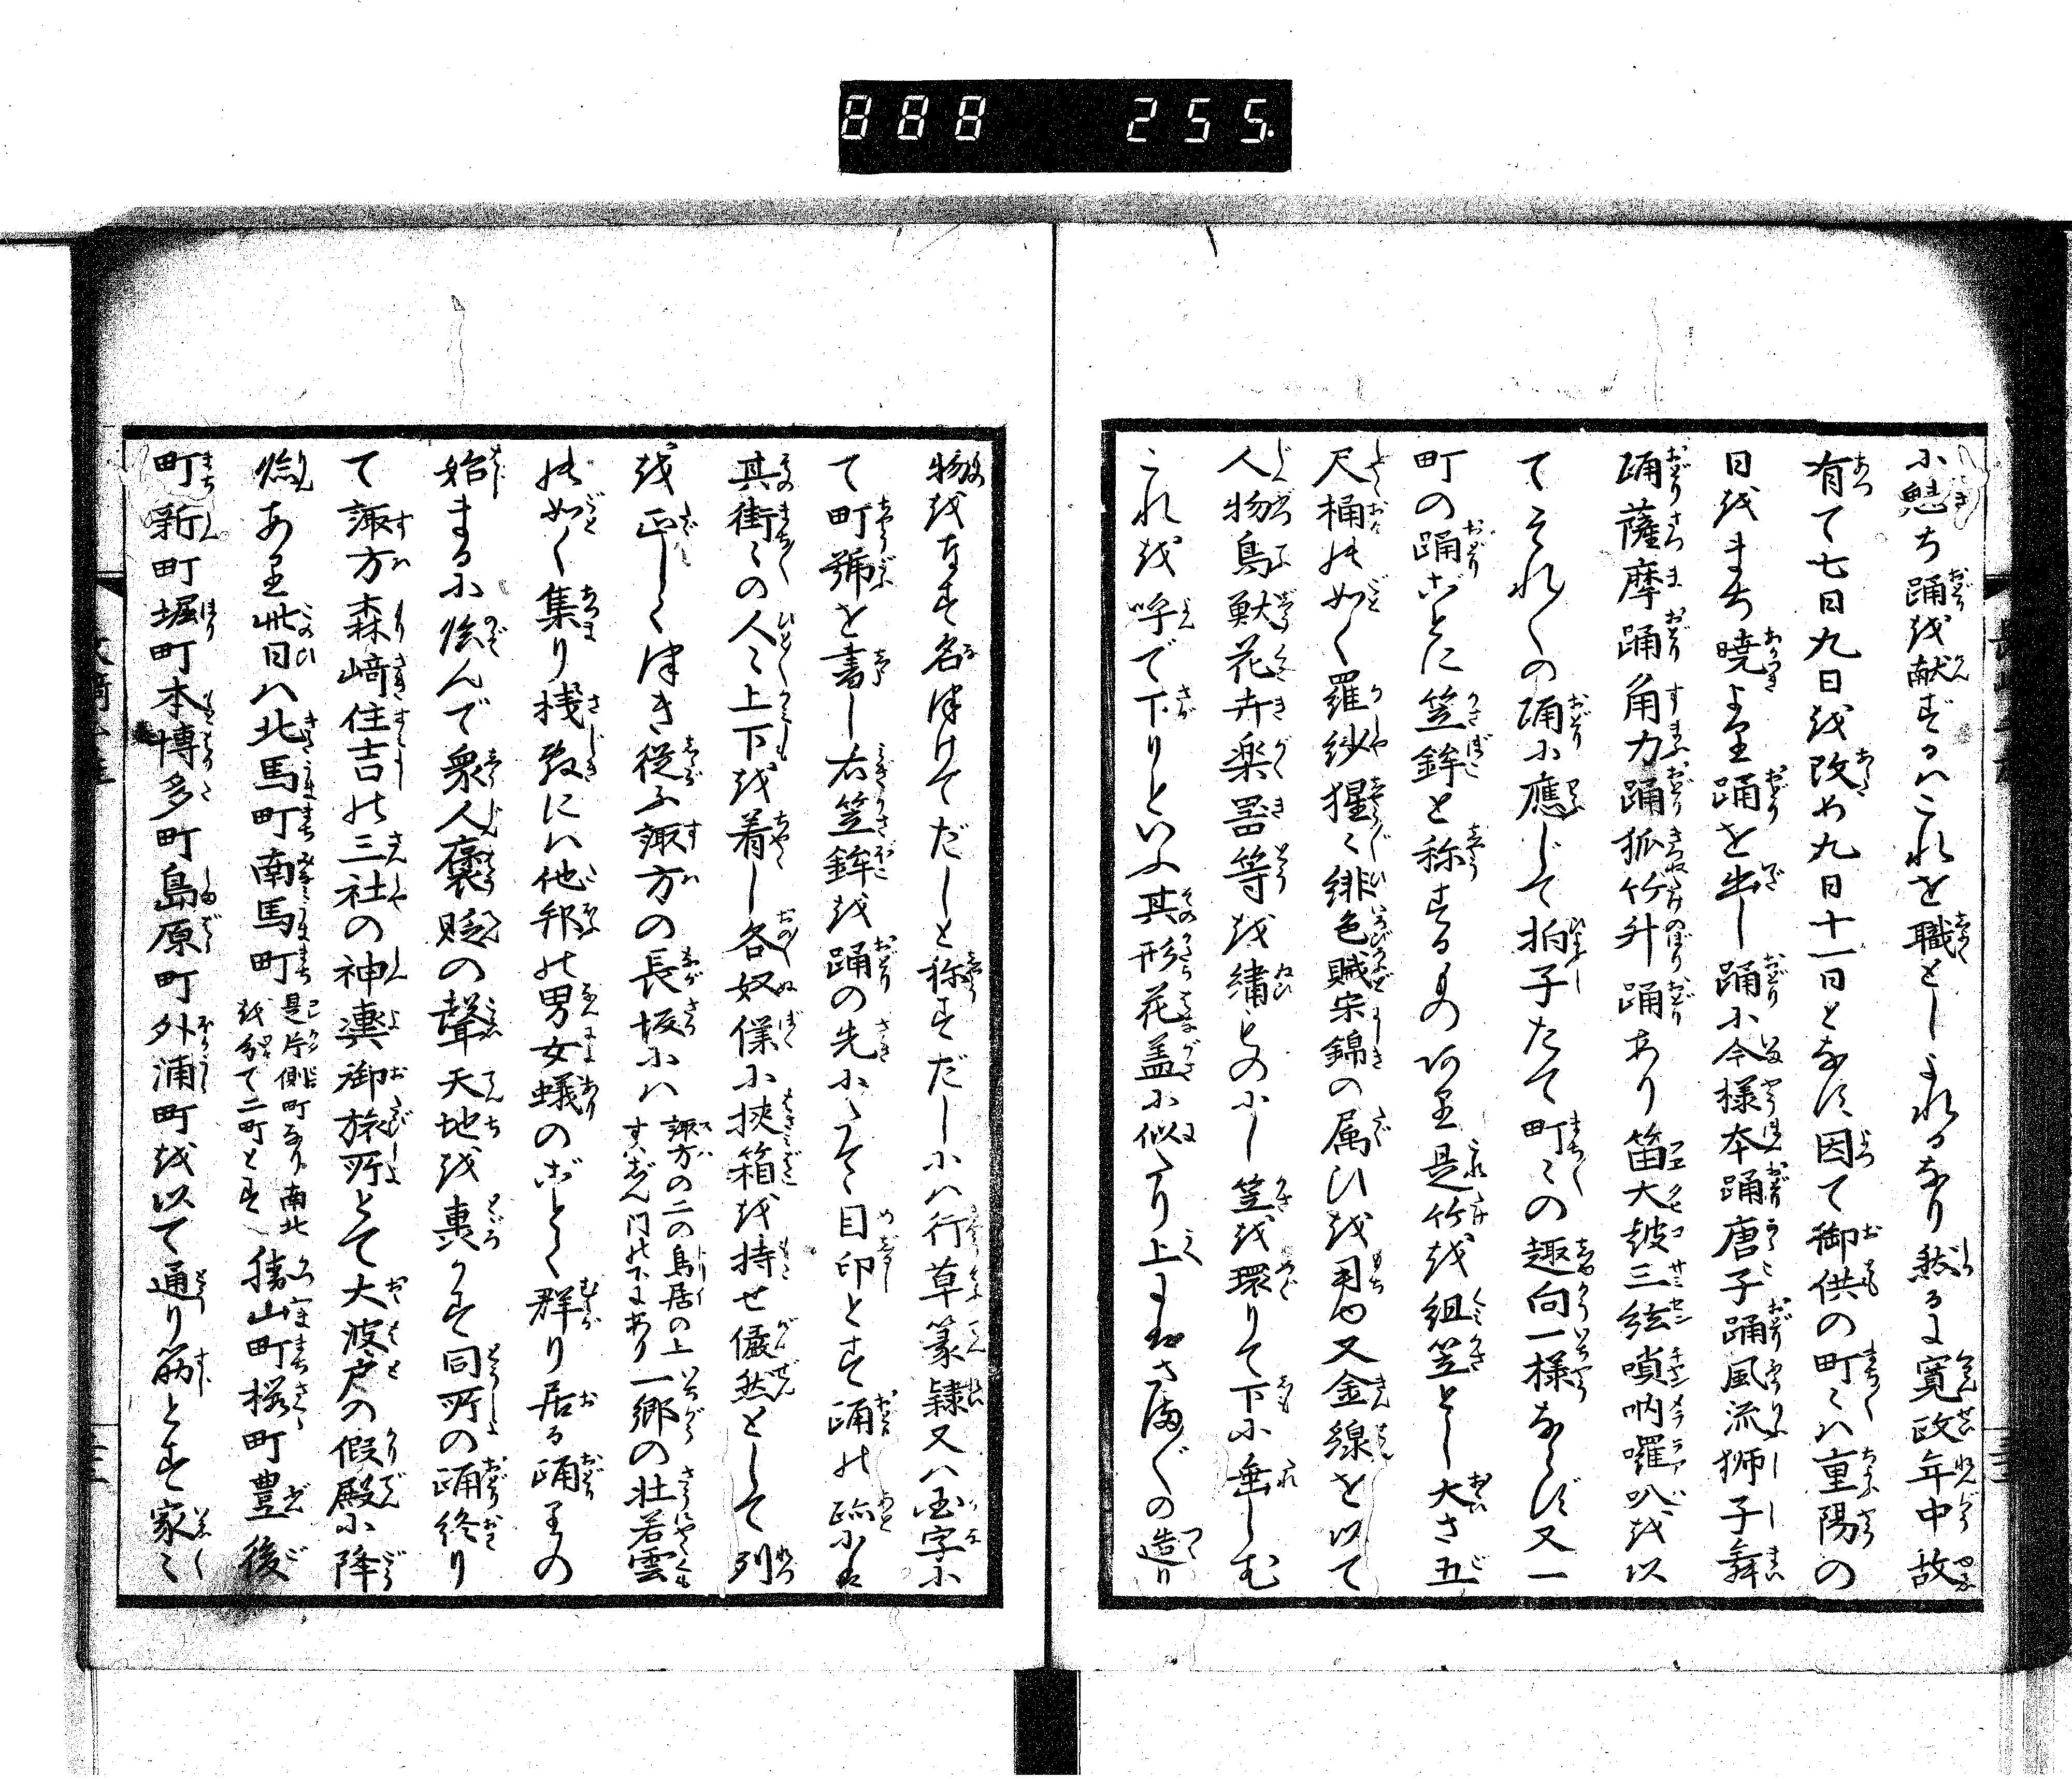 888 255.
に魁ち踊を献ずるハこれを職としよれるなり然るに寛政年中故
有て七日九日を改め九日十一日となす因て御供の町々ハ重陽の
日をまち暁より踊を出し踊に今様本踊唐子踊風流獅子舞
踊薩摩踊角力踊狐竹升踊あり笛大皷三絃嗩吶囉叭を以
てそれ〳〵の踊に應じて拍子たて町々の趣向一様ならず又一
町の踊ごとに笠鉾と称するものあり是竹を組笠とし大さ五
尺桶の如く羅紗猩々緋色賊宋錦の属ひを用ゆ又金線を以て
人物鳥獣花卉楽器等を繍ものにし笠を環りて下に垂しむ
これを呼で下りといふ其形花盖に似たり上にはさま〴〵の造り
物をなす名づけてだしと称すだしには行草篆隷又ハ国字に
て町號を書し右笠鉾を踊の先にたて目印とす踊の跡には
其街々の人々上下を着し各奴僕に挟箱を持せ儼然として列
を正しくつき従ふ諏方の長坂にハ諏方の二の鳥居の上すハぢん門の下にあり一郷の壮若雲
の如く集り桟敷にハ他邦の男女蟻のごとく群り居る踊りの
始まるに臨んで衆人褒貶の聲天地を轟かす同所の踊終り
て諏方森﨑住吉の三社の神輿御旅所とて大波戸の假殿に降
臨あり此日ハ北馬町南馬町是片側町なり南北を分て二町とす勝山町桜町豊後
町新町堀町本博多町島原町外浦町を以て通り筋とす家々